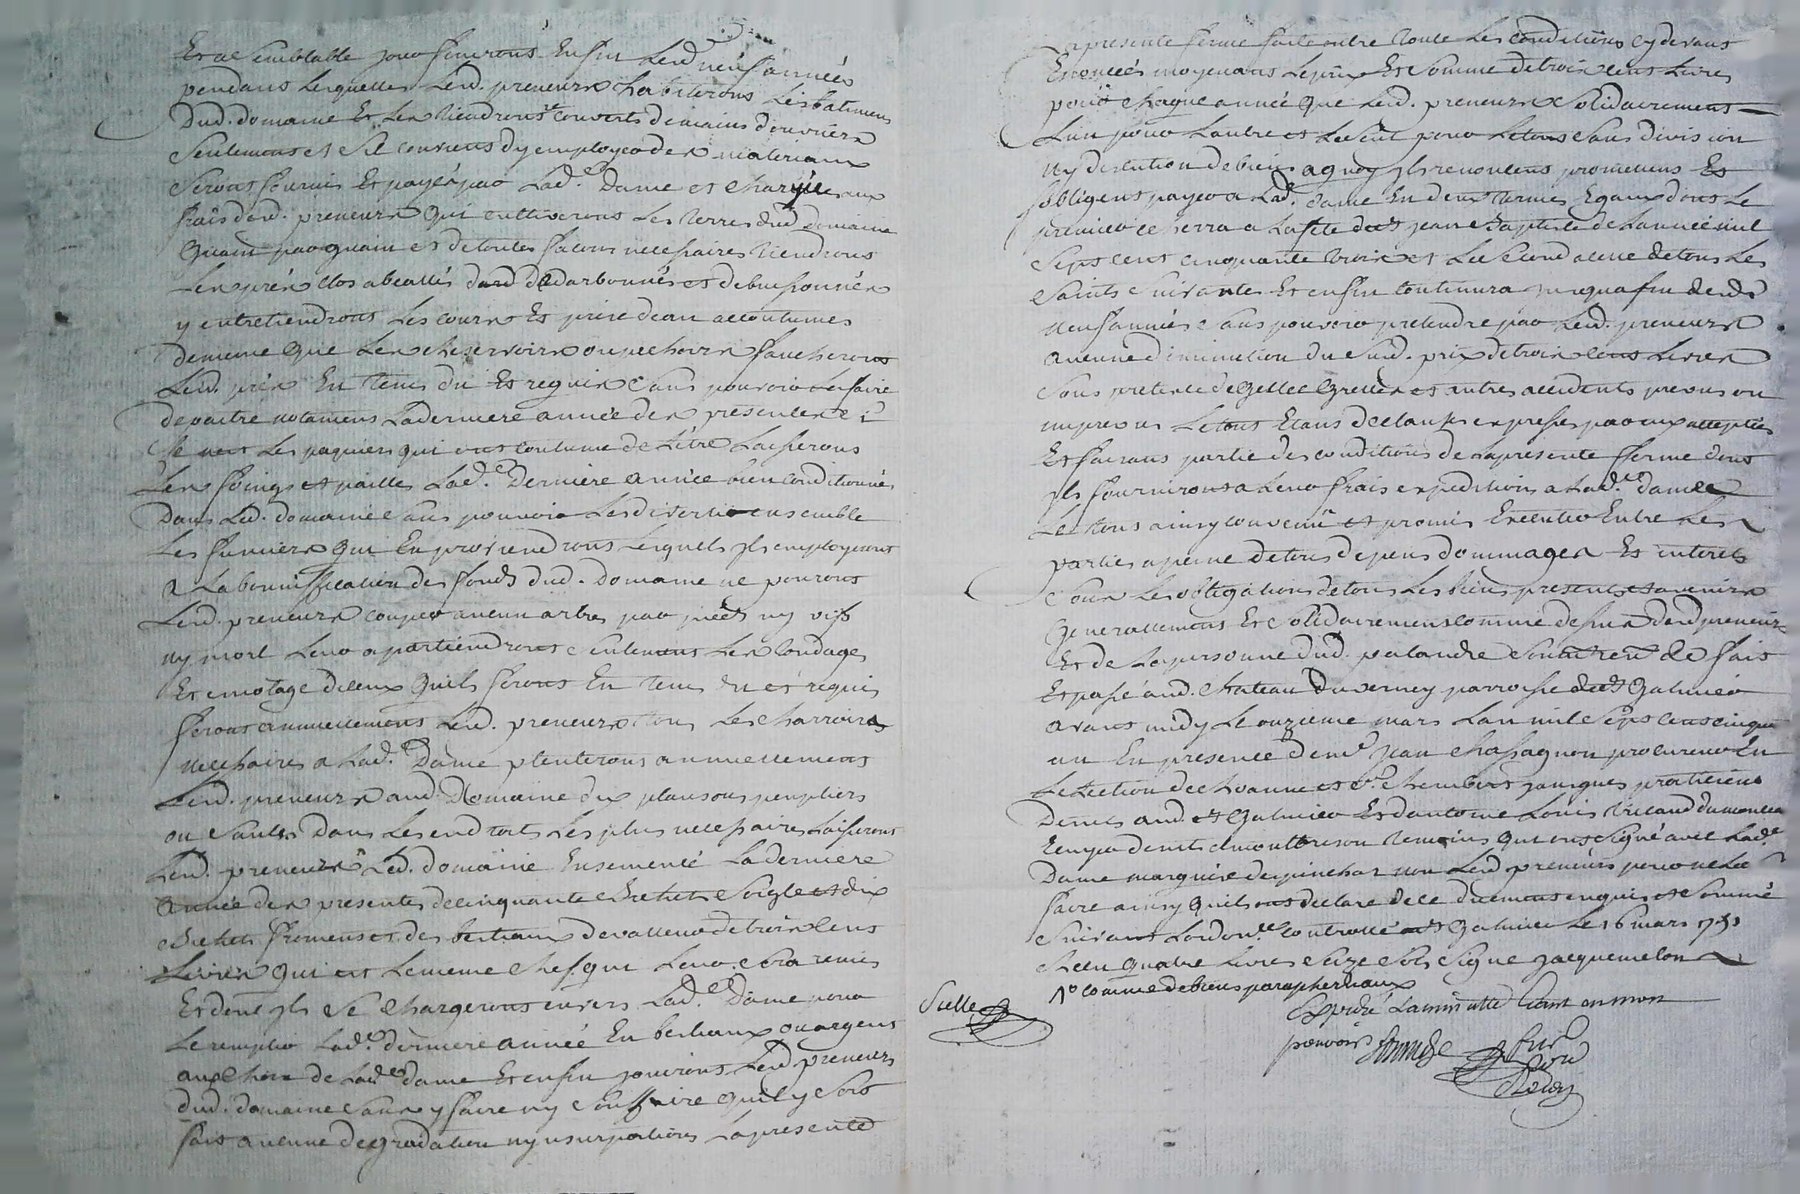 Et de semblable jour finirons Enfin Lesd neuf années
pendans Lesquelles Lesd. preneurs habiterons Les batimens
Dud. domaine Et Les tiendront couverts de mains d'ouvriers
Seulement et S'il convient d'y employer des materiaux
Seront fournis Et payés par Lad.e Dame et chariés aux
frais desd. preneurs Qui cultiverons Les terres dud domaine
Quant par quant et de toutes façons necessaires tiendrons
Les prés clos abeallés et debuissonnés
y entretiendrons Les cours Et prise d'eau accoutumés
de meme Que Les reservoirs faucherons
Lesd. prés En tems du Et requis sans pouvoir Les faire
depaitre notament La derniere année des presentes
Les paquiers qui ont coutume de L'être Laisserons
Les foings et pailles Lad.e Derniere année bien conditionnés
Dans Led. domaine sans pouvoir Les divertir ensemble
Les fumiers Qui En proviendrons Lesquels ils employeront
a La bonniffication des fonds dud. Domaine ne pourons
Lesd. preneurs couper aucun arbre par pied ny vifs
ny mort Leur apartiendrons seulement Les tondages
Et emotage d'iceux Qu'ils ferons En tems du et requis
ferons annuellement Lesd. preneurs tous Les charrois
necessaires a Lad.e Dame planterons annuellement
Lesd. preneurs aud. Domaine dix plansons peupliers
ou Saules Dans Les endroits Les plus necessaires Laisserons
Lesd. preneurs Led. domaine Ensemencé La derniere
année des presentes de cinquante Bichets Seigle et dix
Bichets froment et des bestiaux de valleur de trois cens
Livres Qui est Le meme chef qui Leur sera remis
Et dont ils Se chargerons envers Lad.e Dame pour
Le remplir Lad.e derniere année En bestiaux ou argent
au choix de Lad.e dame Et enfin jouirons Lesd preneurs
dud. domaine sans y faire ny souffrire Qu'il y soit
fait aucune degradation ny usurpations La presente
La presente ferme faite outre toute Les conditions cy devant
Enoncés moyenant Le prix Et Somme de trois cens Livres
pour chaque année Que Lesd. preneurs solidairement
L'un pour L'autre et Le seul pour Le tous sans division
Ny discution de biens a quoy ils renoncent promettent Et
s'obligent payer a Lad.e dame En deux termes Egaux dont Le
premier ce serra a La fete de St jean Baptiste de L'année mil
Sept cent cinquante trois et Le second a celle de tous Les
Saints suivantes Et enfin continura jusqu'a fin desd.
Neuf années sans pouvoir pretendre par Lesd. preneurs
aucune diminution du sud. prix de trois cens Livres
Sous pretexte de Gellée Grelles et autres accidents prevus ou
imprevus Le tout Etant de clause expresse par eux acceptés
Et faisant partie des conditions de La presente ferme dont
ils fourniront a Leur frais expedition a Lad.e dame
Le tous ainsy convenu et promis Executer Entre Les
parties a peine de tous depens dommages Et interets
sous Les obligations de tous Les biens present et avenirs
Generallement Et solidairement comme dessus desd preneurs
Et de La personne dud. palandre fait
Et passé aud. chateau Duverney parroisse de St Galmier
avant midy Le onzieme mars L'an mil Sept cens cinquante
un En presence de me. jean Chassagnon procureur En
L'election de Roanne et Sr. praticiens
Demt. aud. St Galmier Et d'antoine Louis
demt. a montbrison temoins Qui ont signé avec Lad.e
Dame marquise de non Lesd preneurs pour ne Le
faire ainsy Qu'ils ont declaré de ce duement enquis et sommé
suivant L'ordon.ce controllé a St Galmier Le 16 mars 1751
Reçu quatre Livres Seize Sols Signé jacquemeton
1o comme de biens paraphernaux
Expedié La minutte Etant en mon
pouvoir